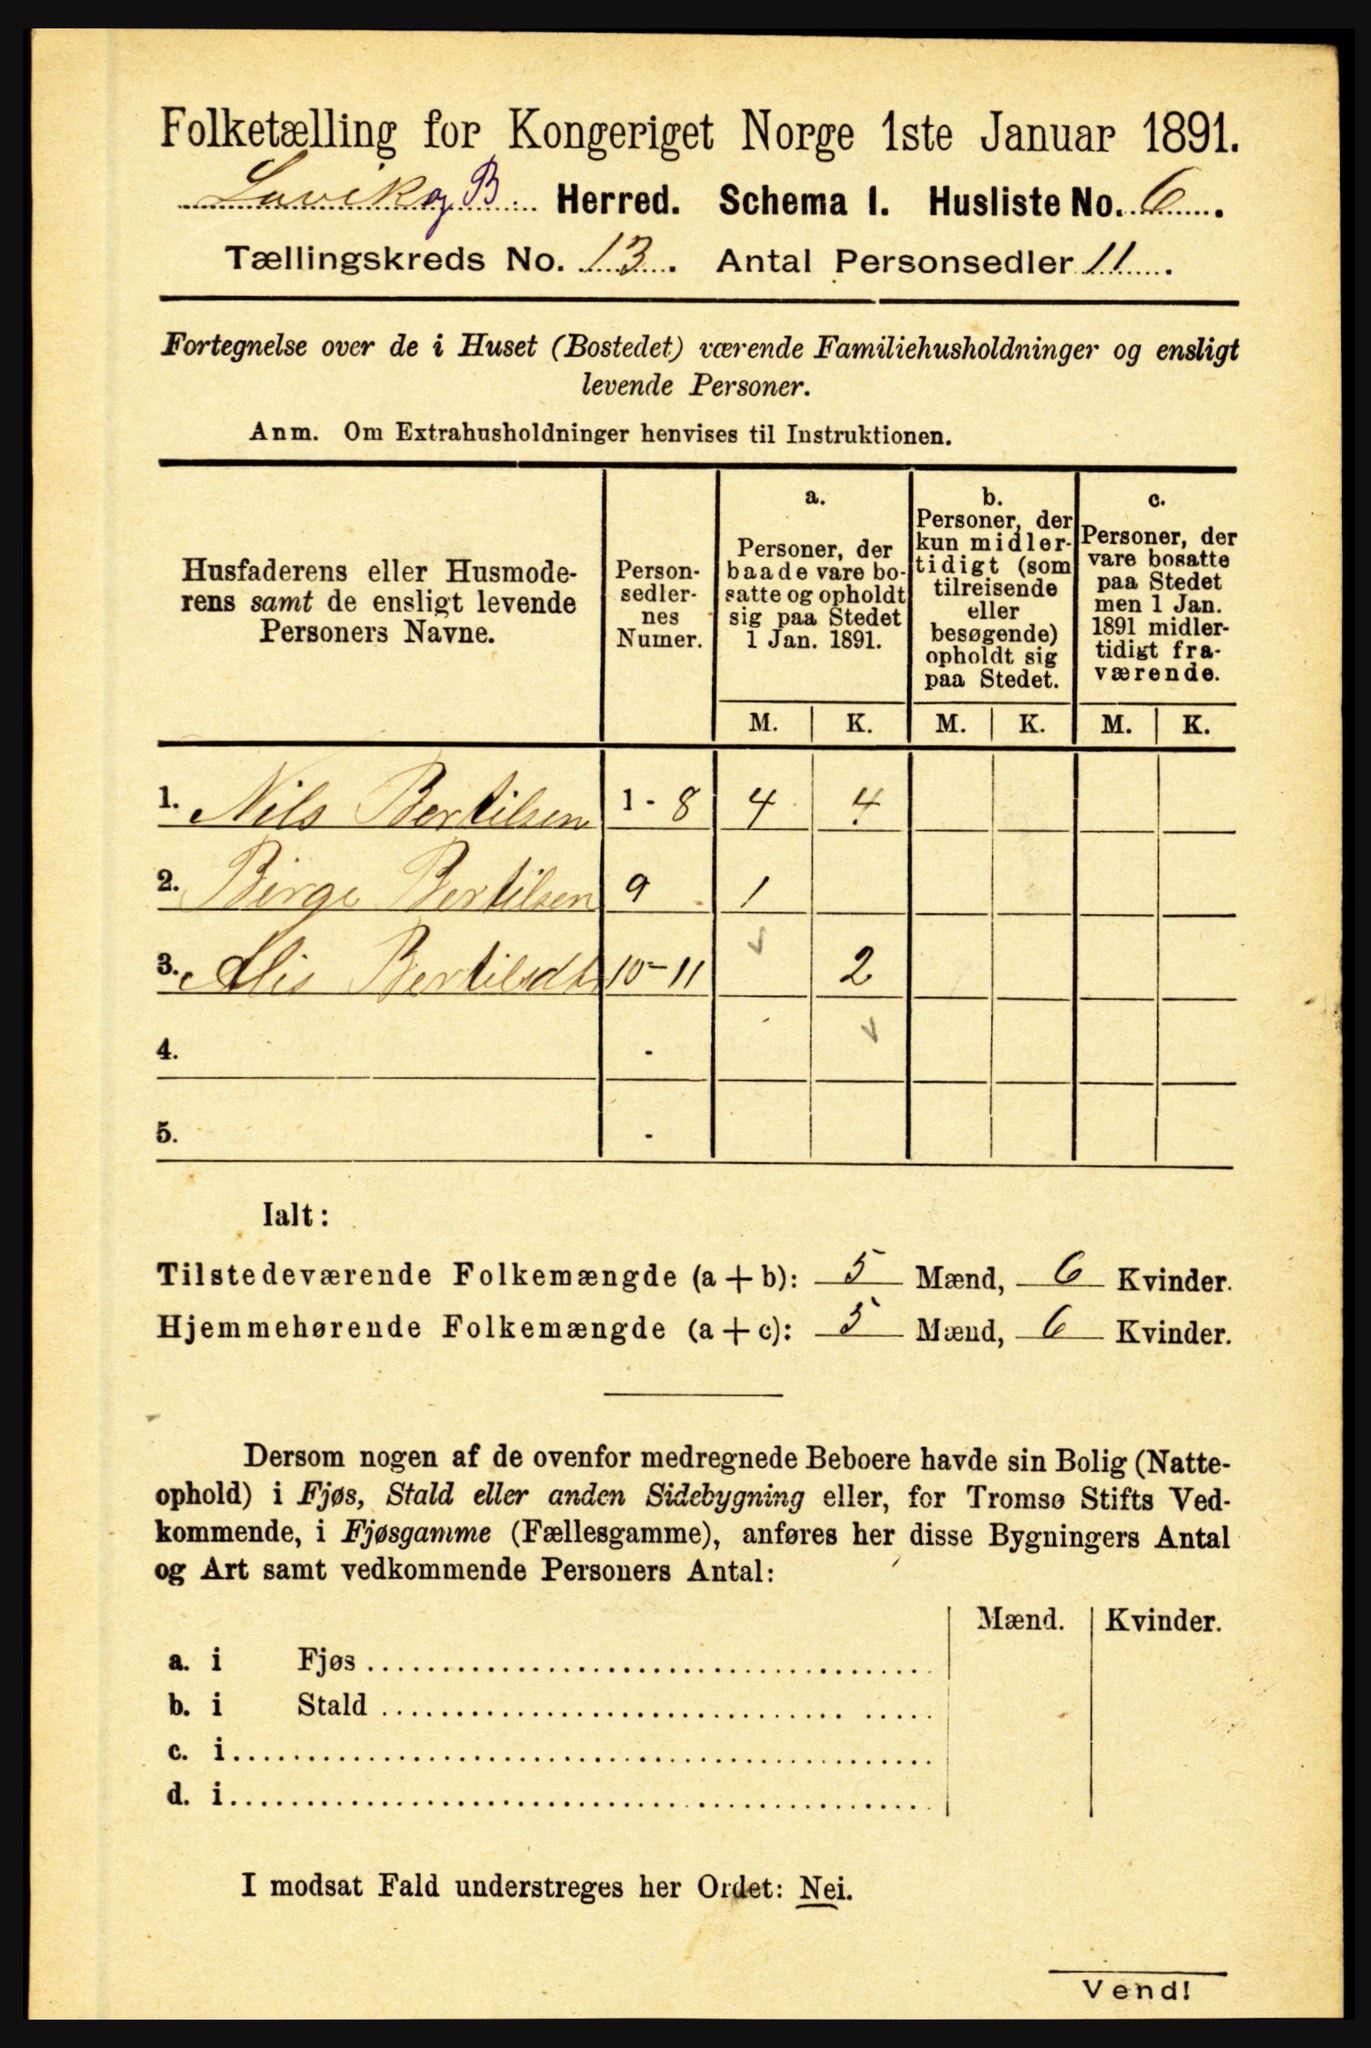 Folketælling for Kongeriget Norge 1ste Januar 1891.
Lavik og B. Herred. Schema I. Husliste No. 6.
Tællingskreds No. 13. Antal Personsedler 11.
Fortegnelse over de i Huset (Bostedet) værende Familiehusholdninger og ensligt
levende Personer.
Anm. Om Extrahusholdninger henvises til Instruktionen.
Husfaderens eller Husmode-
rens samt de ensligt levende
Personers Navne.
Person-
sedler-
nes
Numer.
a.
Personer, der
baade vare bo-
satte og opholdt
sig paa Stedet
1 Jan. 1891.
b.
Personer, der
kun midler-
tidigt (som
tilreisende
eller
besøgende)
opholdt sig
paa Stedet.
c.
Personer, der
vare bosatte
paa Stedet
men 1 Jan.
1891 midler-
tidigt fra-
værende.
M. K. M. K. M. K.
1. Nils Bertilsen 1 - 8 4 4
2. Birge Bertilsen 9 1
3. Alis Bertilsdtr 10-11 2
4. -
5. -
Ialt:
Tilstedeværende Folkemængde (a + b): 5 Mænd, 6 Kvinder.
Hjemmehørende Folkemængde (a + c): 5 Mænd, 6 Kvinder.
Dersom nogen af de ovenfor medregnede Beboere havde sin Bolig (Natte-
ophold) i Fjøs, Stald eller anden Sidebygning eller, for Tromsø Stifts Ved-
kommende, i Fjøsgamme (Fællesgamme), anføres her disse Bygningers Antal
og Art samt vedkommende Personers Antal:
Mænd. Kvinder.
a. i Fjøs
b. i Stald
c. i
d. i
I modsat Fald understreges her Ordet: Nei.
Vend!